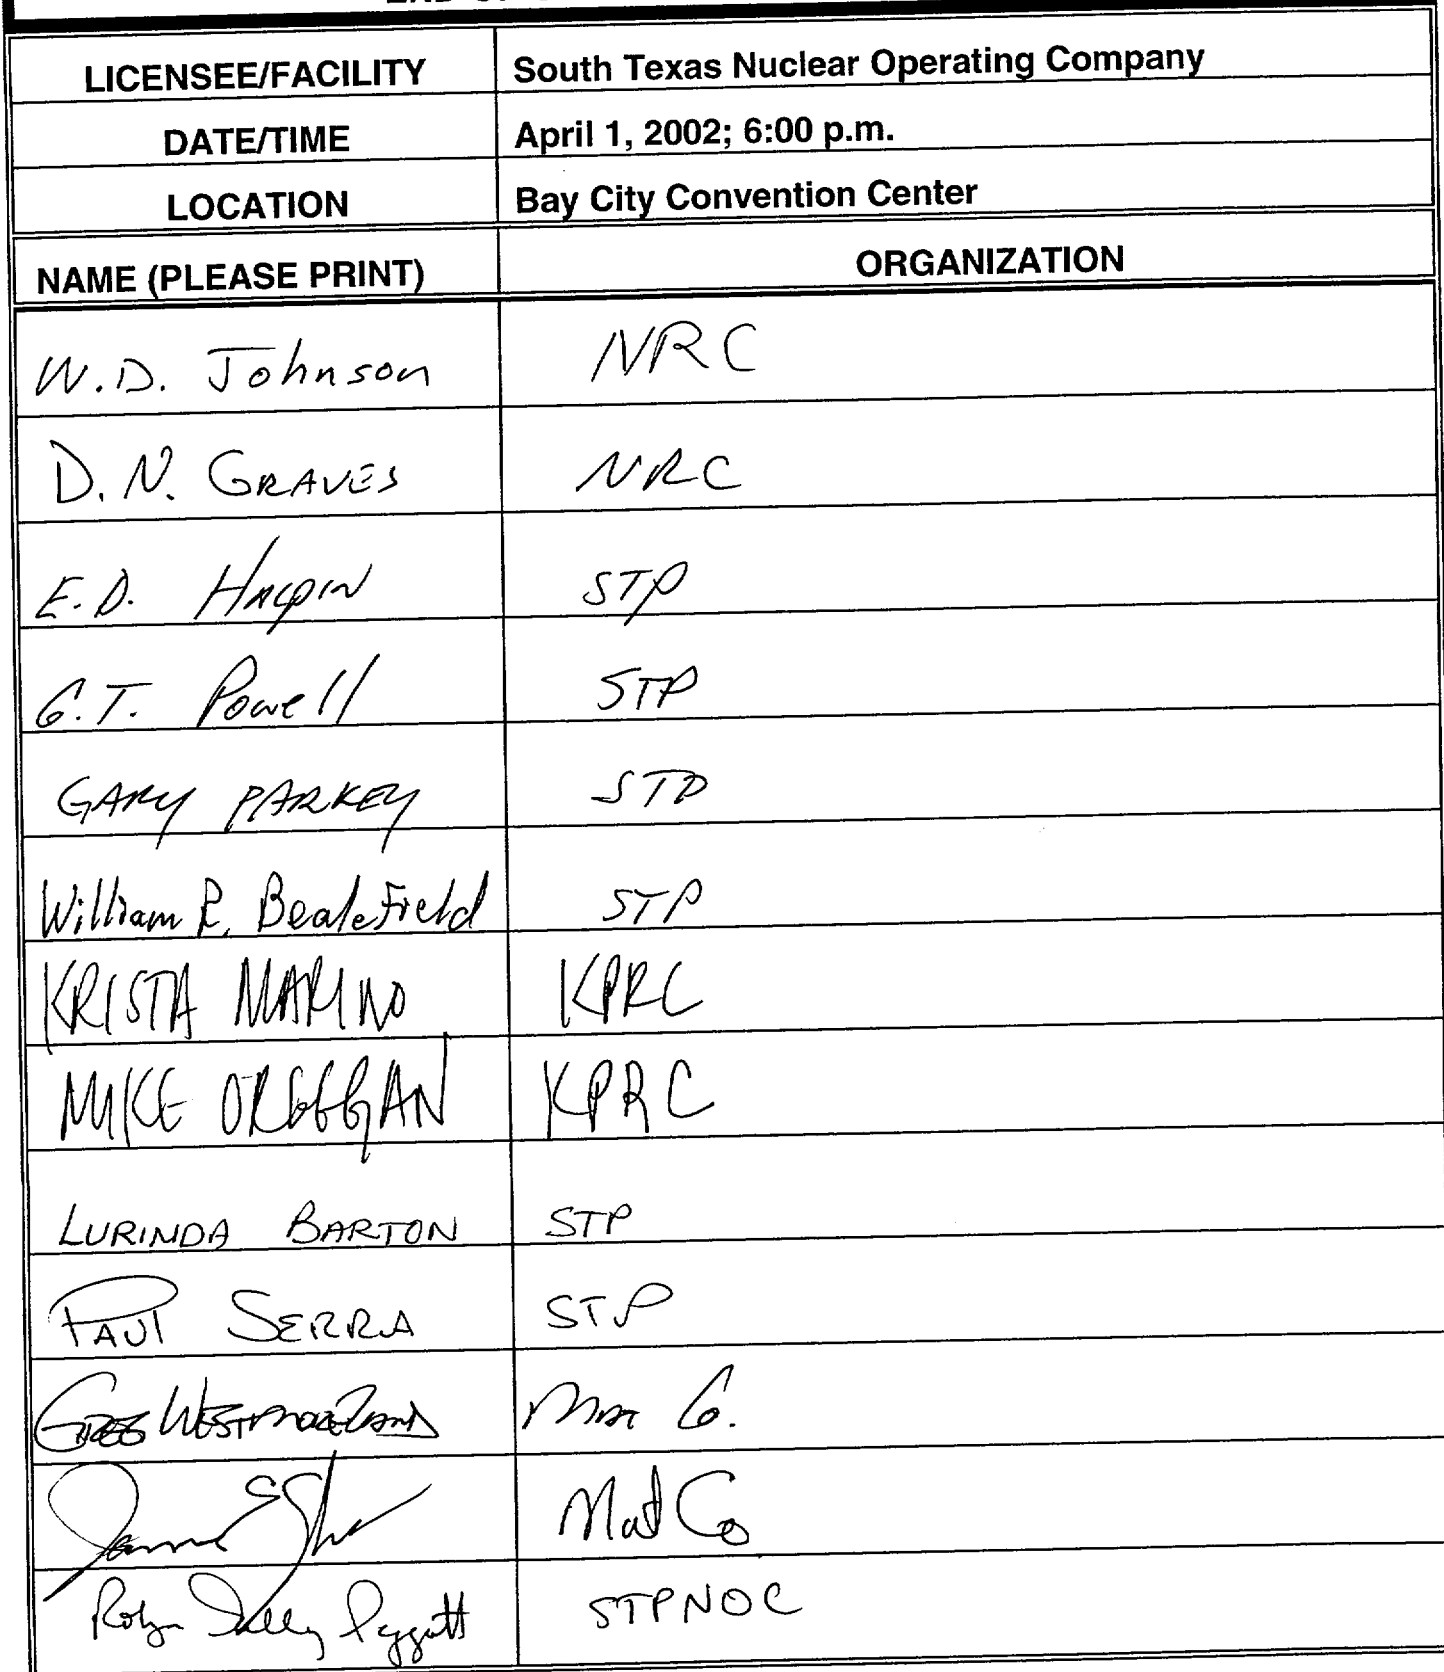 LICENSEE/FACILITY South Texas Nuclear Operating Company
DATE/TIME April 1, 2002; 6:00 p.m.
LOCATION Bay City Convention Center
NAME (PLEASE PRINT) ORGANIZATION
W.D. Johnson NRC
D.N. GRAVES NRC
E.D. Halpin STP
G.T. Powell STP
GARY PARKEY STP
William R. Bealefield STP
KRISTA MARINO KPRC
MIKE OREGGAN KPRC
LURINDA BARTON STP
PAUL SERRA STP
GREG WESTMORELAND Co.
James Mat Co
Robyn Pyggott STPNOC